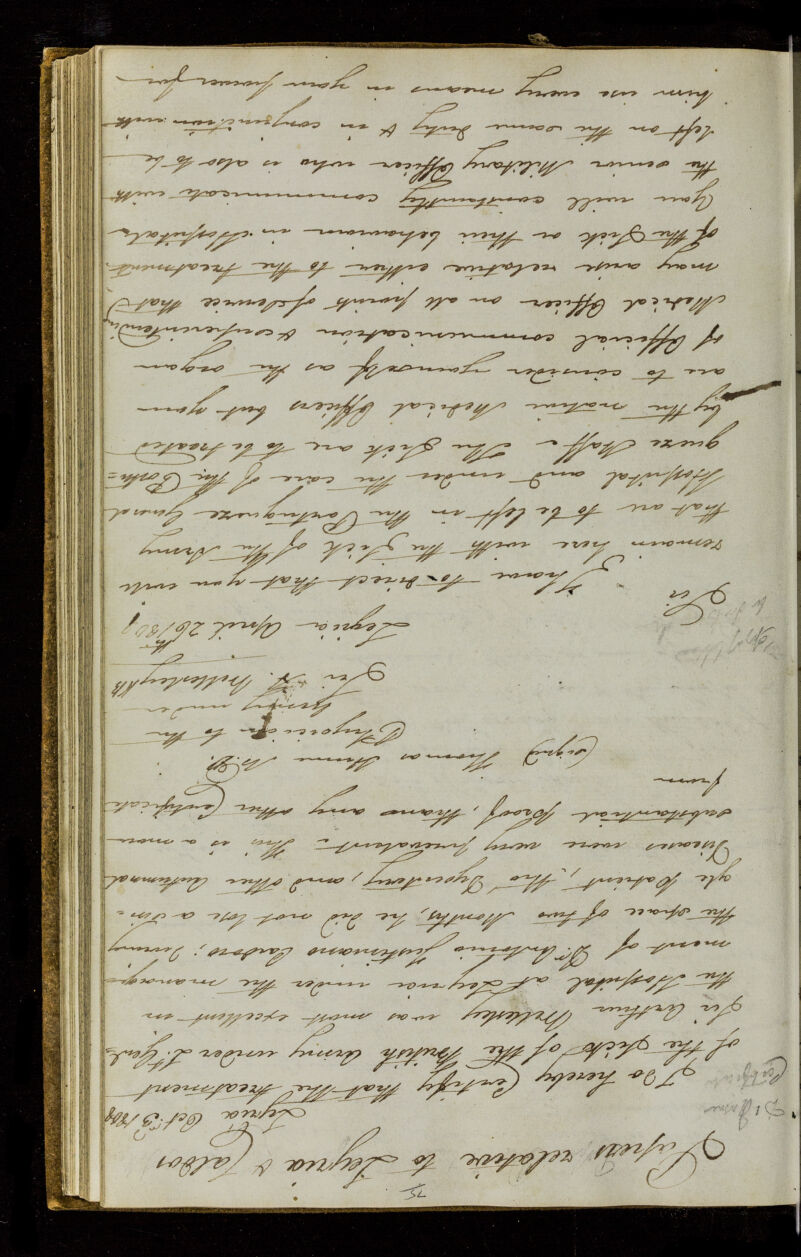 75
Papers relative to Leyria & Caldos
Leyria Oct 3 1808
Dr
Certificate
I Do hereby Certify that the treatment
of the Sick of the British Army under Lt. Genl.
Sir Arthur Wellesley was most excellent in
the Hospital at Leyria under the manage-
ment of Dr. Antonio Justiniano; during
the space of two Months, he did not lose a Sin-
gle Patient, tho Dysentery, and other Autumnal
Diseases were very prevalent = this is a more
substantial Proof, than any other Certificate
from
(signed) Thomas Hume M.D.
Physician to the
Army under
Sir A. Wellesley KB
Leyria April 26th 1809
Sir
I have to direct that you will
remain here with the Sick of the Army
that are to be left in the Portugueze General
Hospital and under the care of the Portu=
gueze Staff = The Sick are to be treated
by the native Medical Officers but you
are to consider yourself as the organ
of Official communication & superintending
Medical Officer on all points of Service that
may arise relative either to the treatment
of the Sick or their behaviour in Hospital
You will constantly communicate with
the senior Military Officer who is also to be
left on the same duty & in conjunction with
him use every means in your power for